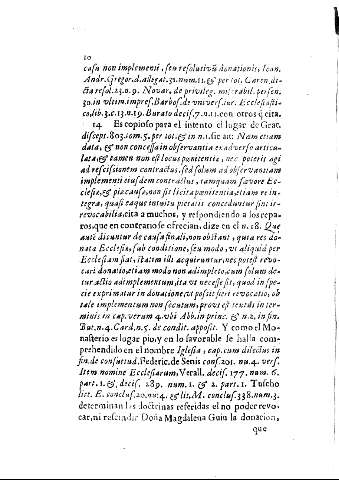 10
casu non implementi, seu resolutivũ donationis, Ioan.
Andr. Gregor. d. allegat. 31. num. 11. & per tot. Caren. de-
cta resol. 23. n. 9. Novar. de privileg. miserabil. person.
30. in ultim. impres. Barbos. de univers. iur. Ecclesiasti-
co, lib. 3. c. 13. n. 19. Burato decis. 7. n. 11. con otros q̃ cita.
14. Es copioso para el intento el lugar de Grat.
discept. 803. tom. 5. per tot. & in n. 1. sic ait: Nam etiam
data, & non concessa in observantia ex adverso articu-
lata & tamen non est locus pœnitentia, nec poterit agi
ad rescissionem contractus, sed solum ad observantiam
implementi eiusdem contractus, tamquam favore Ec-
clesiæ, & piæ causæ, non sit licita pœnitentia, etiam re in-
tegra, quasi eaque intuitu pietatis conceduntur sint ir-
revocabilia, cita a muchos, y respondiendo a los repa-
ros, que en contrario se ofrecian, dize en el n. 18. Quæ
autē dicuntur de causa finali, non obstant, quia res do-
nata Ecclesiæ, sub conditione, seu modo, ut aliquid per
Ecclesiam fiat, statim illi acquiruntur, nec potest revo-
cari donatio, etiam modo non adimpleto, cum solum de-
tur actio ad implementum, ita ut necesse sit, quod in spe-
cie exprimatur in donatione, ut possit fieri revocatio, ob
tale implementum non secutum, prout est tendis in ter-
minis in cap. verum 4. ubi Abb. in princ. & n. 2. in fin.
But. n. 4. Card. n. 5. de condit. apposit. Y como el Mo-
nasterio es lugar pio, y en lo favorable se halla com-
prehendido en el nombre Iglesia, cap. cum dilectus in
fin. de consuetud. Federic. de Senis cons. 201. nu. 4. vers.
Item nomine Ecclesiarum, Verall. decis. 177. num. 6.
part. 1. &, decis. 289. num. 1. & 2. part. 1. Tuscho
litt. E. conclus. 20. nu. 4. & lit. M. conclus. 338. num. 3.
determinan las doctrinas referidas el no poder revo-
car, ni rescindir Doña Magdalena Guiu la donacion,
que